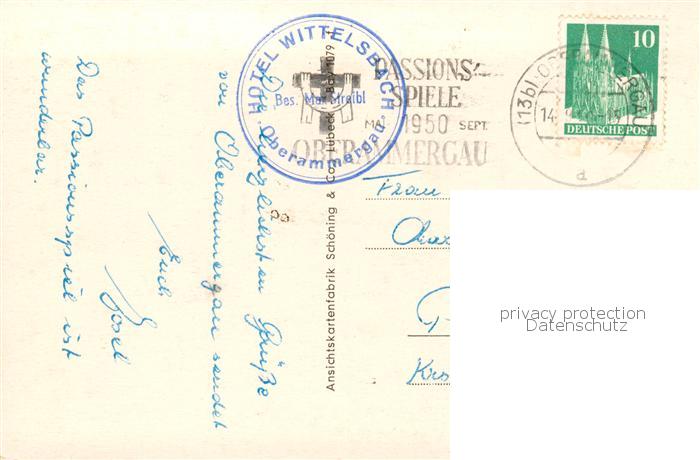 Die herzlichsten Grüße
von Oberammergau sendet
Euch
Josef
Das Passionsspiel ist
wunderbar.
HOTEL WITTELSBACH
Bes. Max Streibl
Oberammergau
PASSIONS-
SPIELE
MAI 1950 SEPT.
OBERAMMERGAU
(13b)
14.
d
10
DEUTSCHE POST
Ansichtskartenfabrik Schöning & Co., Lübeck Bay 1079
Frau
privacy protection
Datenschutz